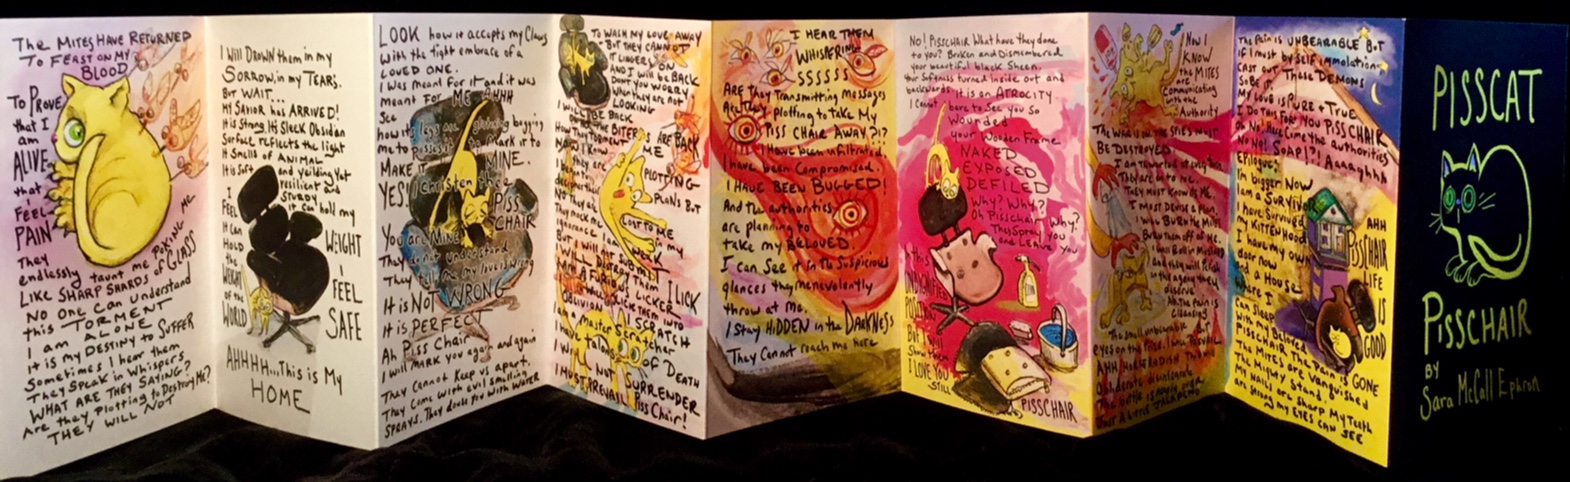 The MITES HAVE RETURNED
To FEAST ON MY
BLOOD
To PROVE
that I
am
ALIVE
that
I FEEL
PAIN
They
endlessly taunt me POKING ME
LIKE SHARP SHARDS of GLASS
NO ONE CAN Understand
this TORMENT
I am ALONE
It is MY DESTINY to SUFFER
Sometimes I hear them
They Speak in Whispers
WHAT ARE THEY SAYING?
Are they Plotting to Destroy ME?
THEY WILL NOT
I Will DROWN them in my
SORROW, in my TEARS.
BUT WAIT...
MY SAVIOR has ARRIVED!
It is Strong. Its Sleek Obsidian
Surface reflects the light
It Smells of ANIMAL
It is Soft and yeilding Yet
resilient and
STURDY
it can hold my
WEIGHT
I
FEEL
It Can
HOLD
the
WEIGHT
of the
WORLD
I
FEEL
SAFE
AHHHH...This is My
HOME
LOOK how it accepts my Claws
With the tight embrace of a
LOVED ONE.
I was Meant For it and it was
Meant For ME AHHH
See
how its legs are glinting begging
me to possess it mark it to
MAKE IT MINE.
YES! I christen thee
PISS
CHAIR
You are MINE
They do not understand
They tell me my love is
It is NOT WRONG
It is PERFECT
Ah Piss Chair
I will MARK you again and again
They Cannot Keep us apart.
They Come with evil smelling
SPRAYS. They douse you with WATER
To WASH MY LOVE AWAY
BUT THEY CANNOT
IT LINGERS ON
AND I will be BACK
Don't you WORRY
When they are not
LOOKING
I WILL BE BACK
THE BITERS ARE BACK
HOW THEY TORMENT ME
NOW I Know
they are PLOTTING
PLANS BUT
LOST TO ME
They mock me in my
ignorance
But I will not SUBMIT
I WILL DESTROY THEM
I AM A FURIOUS LICKER I LICK
I WILL LICK THEM INTO
OBLIVION I SCRATCH
I am a Master Scratcher
I have Talons of DEATH
I Will NOT SURRENDER
I MUST PREVAIL Piss Chair!
I HEAR THEM
WHISPERING
SSSSSS
ARE they Transmitting Messages
Are They plotting to take My
PISS CHAIR AWAY?!?
I have been infiltrated.
I have been Compromised.
I HAVE BEEN BUGGED!
And the authorities
are planning to
take my BELOVED.
I can See it in the Suspicious
glances they menevolently
throw at Me.
I Stay HIDDEN in the DARKNESS
They Cannot reach me here
NO! PISSCHAIR What have they done
to you? Broken and Dismembered
your beautiful black Sheen.
Your Softness turned inside out and
backwards It is an ATROCITY
I Cannot bare to See you So
Wounded
your Wooden Frame
NAKED
EXPOSED
DEFILED
Why? Why?
Oh Pisschair Why?
They Spray you
and Leave you
in this
UNDIGNIFIED
POSITION
But I will
Show them
I LOVE YOU
STILL
PISSCHAIR
NOW I
KNOW
the MITES
are
Communicating
with the
Authority
THE WAR IS ON THE SPIES MUST
BE DESTROYED.
I am
They are into me.
They must know of ME.
I MUST DEVISE A PLAN.
I will BURN the Mites
BURN them off of ME.
I will Boil in
and they will
in the agony they
deserve
Ah the Pain is
Cleansing
The small unbearable
eyes on the
The pain is UNBEARABLE BUT
if I must by SELF immolation
CAST OUT These DEMONS
SO BE IT.
MY LOVE is PURE + TRUE
I DO This FOR YOU PISSCHAIR
Oh No! Here Come the authorities
NO NO! SOAP!?! Aaaaghhh
Epilogue:
I'm bigger NOW
I am a SURVIVOR
I have Survived
my KITTENHOOD
I have my OWN
door now
and a HOUSE
where I
Can Sleep
With my Beloved
PISSCHAIR The Pain is GONE
The MITES are Vanquished
The Mighty Stand.
MY NAILS are Sharp My Teeth
are Strong my EYES CAN SEE
AHH
PISSCHAIR
LIFE
IS
GOOD
PISSCAT
PISSCHAIR
BY
Sara McCall Ephron